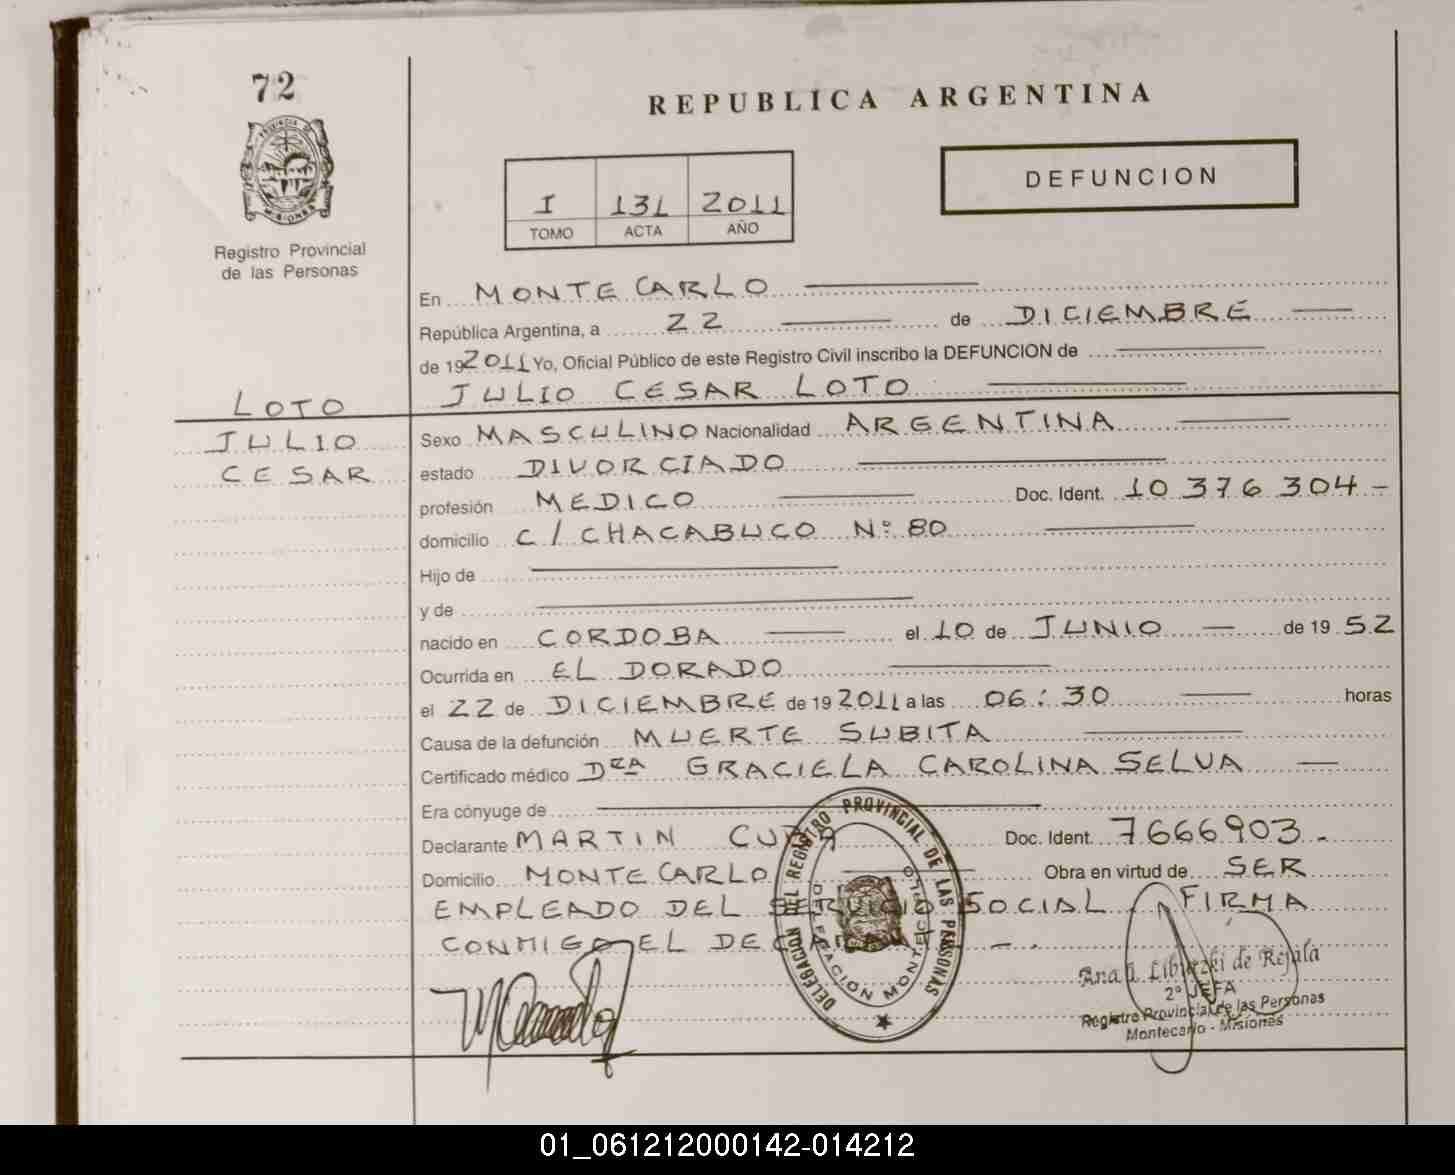 72
PROVINCIA DE
MISIONES
Registro Provincial
de las Personas
REPUBLICA ARGENTINA
I 131 2011
TOMO ACTA AÑO
DEFUNCION
En MONTE CARLO
República Argentina, a 22 de DICIEMBRE
de 192011 Yo, Oficial Público de este Registro Civil inscribo la DEFUNCION de
JULIO CESAR LOTO
LOTO
JULIO
CESAR
Sexo MASCULINO Nacionalidad ARGENTINA
estado DIVORCIADO
profesión MEDICO Doc. Ident. 10 376 304 -
domicilio C/ CHACABUCO Nº 80
Hijo de
y de
nacido en CORDOBA el 10 de JUNIO de 19 52
Ocurrida en EL DORADO
el 22 de DICIEMBRE de 19 2011 a las 06:30 horas
Causa de la defunción MUERTE SUBITA
Certificado médico DRA GRACIELA CAROLINA SELVA
Era cónyuge de
Declarante MARTIN Doc. Ident. 7666903.-
Domicilio MONTE CARLO Obra en virtud de SER
EMPLEADO DEL SERVICIO SOCIAL FIRMA
CONMIGO EL DECLARANTE -.
DELEGACION DEL REGISTRO PROVINCIAL DE LAS PERSONAS
DELEGACION MONTECARLO
de Rejala
2º JEFA
Registro Provincial de las Personas
Montecarlo - Misiones
01_061212000142-014212